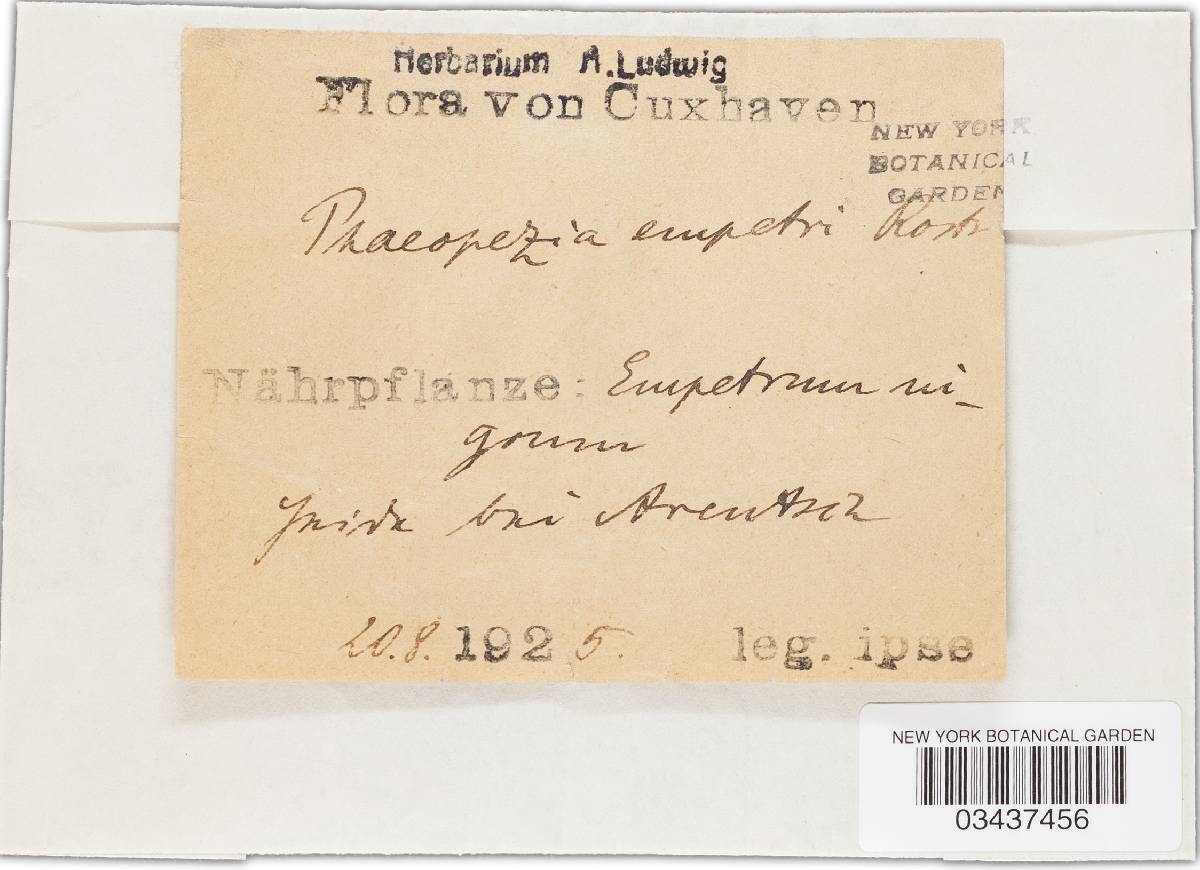 Herbarium A.Ludwig
Flora von Cuxhaven
NEW YORK
BOTANICAL
GARDEN
Phaeopezia empetri Rostr
Nährpflanze: Empetrum ni-
grum
Heide bei Arentsch
20.8. 1925. leg. ipse
NEW YORK BOTANICAL GARDEN
03437456